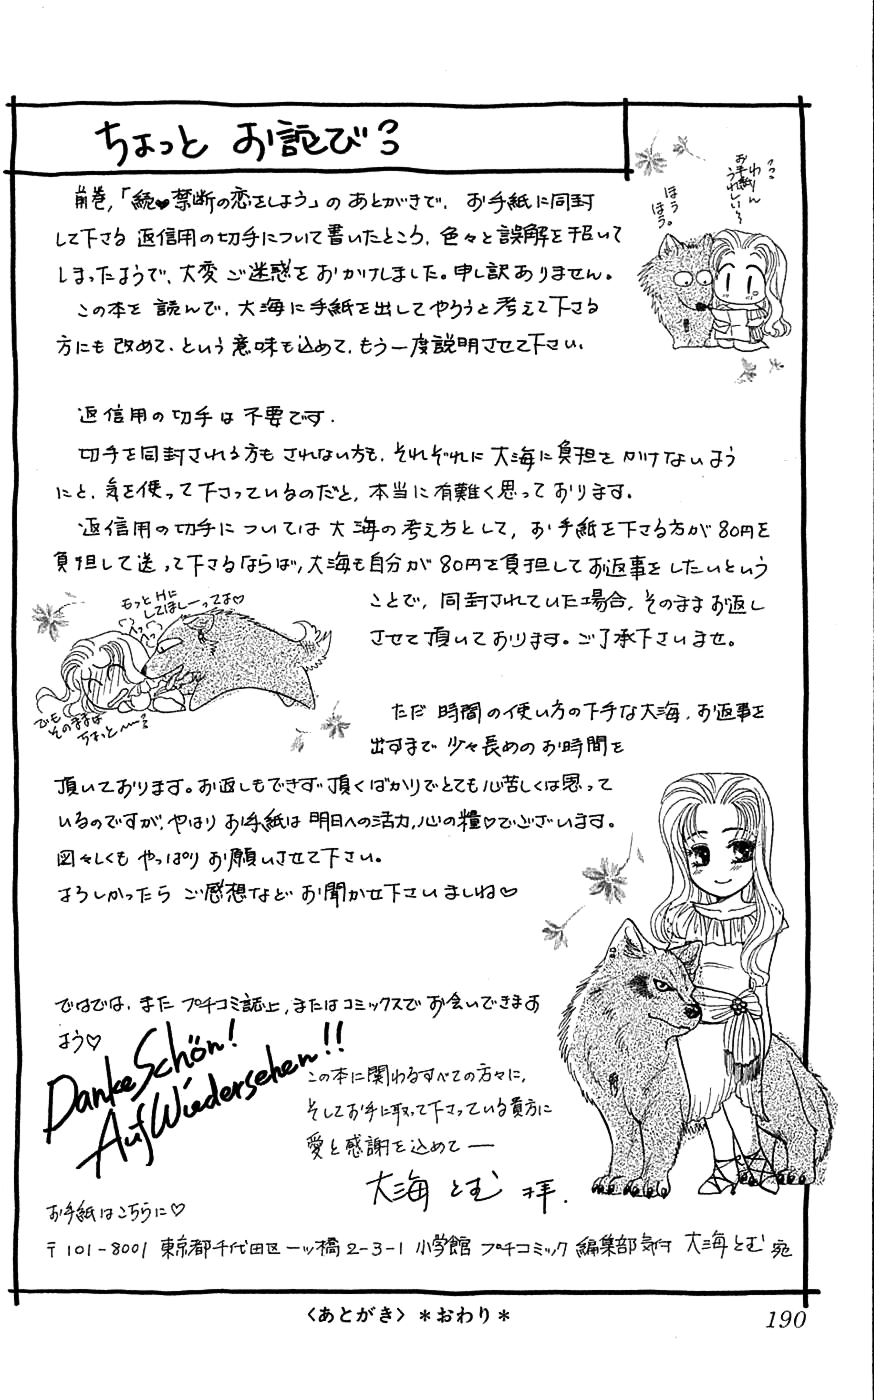 ちょっと お詫び
前巻,「続♥禁断の恋をしよう」の あとがきで、 お手紙に同封
して下さる 返信用の切手について書いたところ、色々と誤解を招いて
しまったようで、大変ご迷惑をおかけしました。申し訳ありません。
この本を 読んで、大海に手紙を出してやろうと考えて下さる
方にも 改めて、という意味も込めて、もう一度説明させて下さい、
わりん
お手紙
うれしい〜
ほう
ほう。
返信用の切手は不要です.
切手を同封される方も されない方も、それぞれに 大海に負担をかけないよう
にと、気を使って下さっているのだと、本当に有難く思っております。
返信用の切手については大海の考え方として、お手紙を下さる方が80円を
負担して送って下さるならば、大海も自分が80円を負担してお返事をしたいという
ことで、同封されていた場合、そのままお返し
させて頂いております。ご了承下さいませ。
もっとHに
してほしーってよ♡
でも
そのままは
ちょっと〜
ただ 時間の使い方の下手な大海、お返事を
出すまで 少々長めのお時間を
頂いております。お返しもできず頂くばかりでとても心苦しくは思って
いるのですが、やはり お手紙は 明日への活力、心の糧♡でございます。
図々しくも やっぱり お願いさせて下さい。
よろしかったら ご感想など お聞かせ下さいましね♡
ではでは、また プチコミ誌上、またはコミックスで お会いできます
よう♡
Danke Schön!
Auf Wiedersehen!!
この本に関わるすべての方々に、
そしてお手に取って下さっている貴方に
愛と感謝を込めて―
大海とむ 拝.
お手紙はこちらに♡
〒101-8001 東京都千代田区一ツ橋2-3-1 小学館 プチコミック 編集部気付 大海とむ 宛
〈あとがき〉*おわり*
190